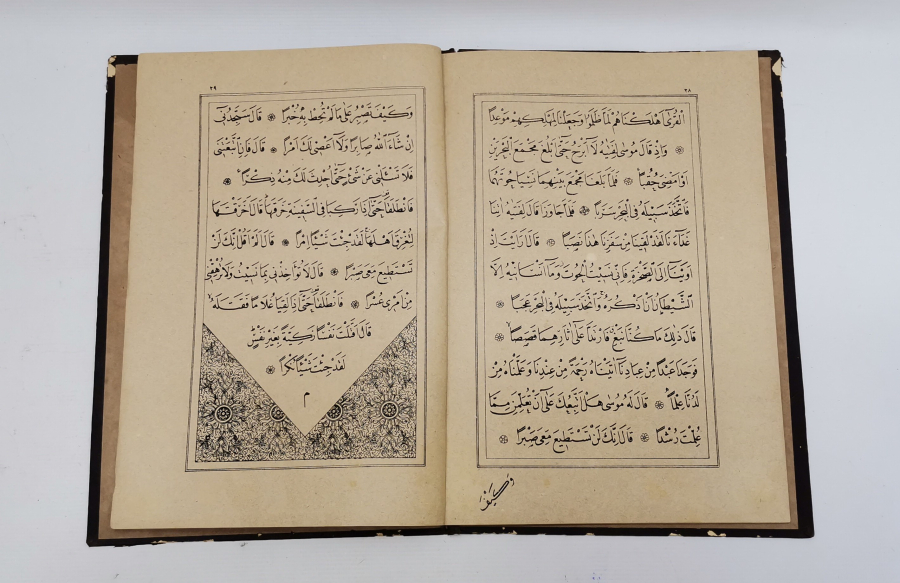 ٢٨
الْقُرٰٓى اَهْلَكْنَاهُمْ لَمَّا ظَلَمُوا وَجَعَلْنَا لِمَهْلِكِهِمْ مَوْعِدًا
۞ وَاِذْ قَالَ مُوسٰى لِفَتٰيهُ لَٓا اَبْرَحُ حَتّٰٓى اَبْلُغَ مَجْمَعَ الْبَحْرَيْنِ
اَوْ اَمْضِيَ حُقُبًا ۞ فَلَمَّا بَلَغَا مَجْمَعَ بَيْنِهِمَا نَسِيَا حُوتَهُمَا
فَاتَّخَذَ سَبِيلَهُ فِي الْبَحْرِ سَرَبًا ۞ فَلَمَّا جَاوَزَا قَالَ لِفَتٰيهُ اٰتِنَا
غَدَٓاءَنَا لَقَدْ لَقِينَا مِنْ سَفَرِنَا هٰذَا نَصَبًا ۞ قَالَ اَرَاَيْتَ اِذْ
اَوَيْنَٓا اِلَى الصَّخْرَةِ فَاِنِّي نَسِيتُ الْحُوتَ وَمَٓا اَنْسَانِيهُ اِلَّا
الشَّيْطَانُ اَنْ اَذْكُرَهُ وَاتَّخَذَ سَبِيلَهُ فِي الْبَحْرِ عَجَبًا ۞
قَالَ ذٰلِكَ مَا كُنَّا نَبْغِ فَارْتَدَّا عَلٰٓى اٰثَارِهِمَا قَصَصًا ۞
فَوَجَدَا عَبْدًا مِنْ عِبَادِنَٓا اٰتَيْنَاهُ رَحْمَةً مِنْ عِنْدِنَا وَعَلَّمْنَاهُ مِنْ
لَدُنَّا عِلْمًا ۞ قَالَ لَهُ مُوسٰى هَلْ اَتَّبِعُكَ عَلٰٓى اَنْ تُعَلِّمَنِ مِمَّا
عُلِّمْتَ رُشْدًا ۞ قَالَ اِنَّكَ لَنْ تَسْتَطِيعَ مَعِيَ صَبْرًا ۞
وَكَيْفَ
٢٩
وَكَيْفَ تَصْبِرُ عَلٰى مَا لَمْ تُحِطْ بِهِ خُبْرًا ۞ قَالَ سَتَجِدُنِٓي
اِنْ شَٓاءَ اللّٰهُ صَابِرًا وَلَٓا اَعْصِي لَكَ اَمْرًا ۞ قَالَ فَاِنِ اتَّبَعْتَنِي
فَلَا تَسْـَٔلْنِي عَنْ شَيْءٍ حَتّٰٓى اُحْدِثَ لَكَ مِنْهُ ذِكْرًا ۞
فَانْطَلَقَا حَتّٰٓى اِذَا رَكِبَا فِي السَّفِينَةِ خَرَقَهَا قَالَ اَخَرَقْتَهَا
لِتُغْرِقَ اَهْلَهَا لَقَدْ جِئْتَ شَيْئًا اِمْرًا ۞ قَالَ اَلَمْ اَقُلْ اِنَّكَ لَنْ
تَسْتَطِيعَ مَعِيَ صَبْرًا ۞ قَالَ لَا تُؤَاخِذْنِي بِمَا نَسِيتُ وَلَا تُرْهِقْنِي
مِنْ اَمْرِي عُسْرًا ۞ فَانْطَلَقَا حَتّٰٓى اِذَا لَقِيَا غُلَامًا فَقَتَلَهُ
قَالَ اَقَتَلْتَ نَفْسًا زَكِيَّةً بِغَيْرِ نَفْسٍ
لَقَدْ جِئْتَ شَيْئًا نُكْرًا ۞
م